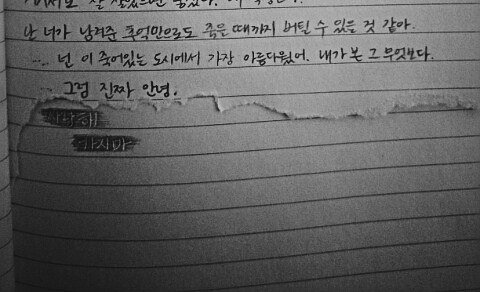 잘
난 너가 남겨준 추억만으로도 죽을 때까지 버틸 수 있을 것 같아.
.... 넌 이 죽어있는 도시에서 가장 아름다웠어. 내가 본 그 무엇보다.
... 그럼 진짜 안녕.
사랑해
가지마